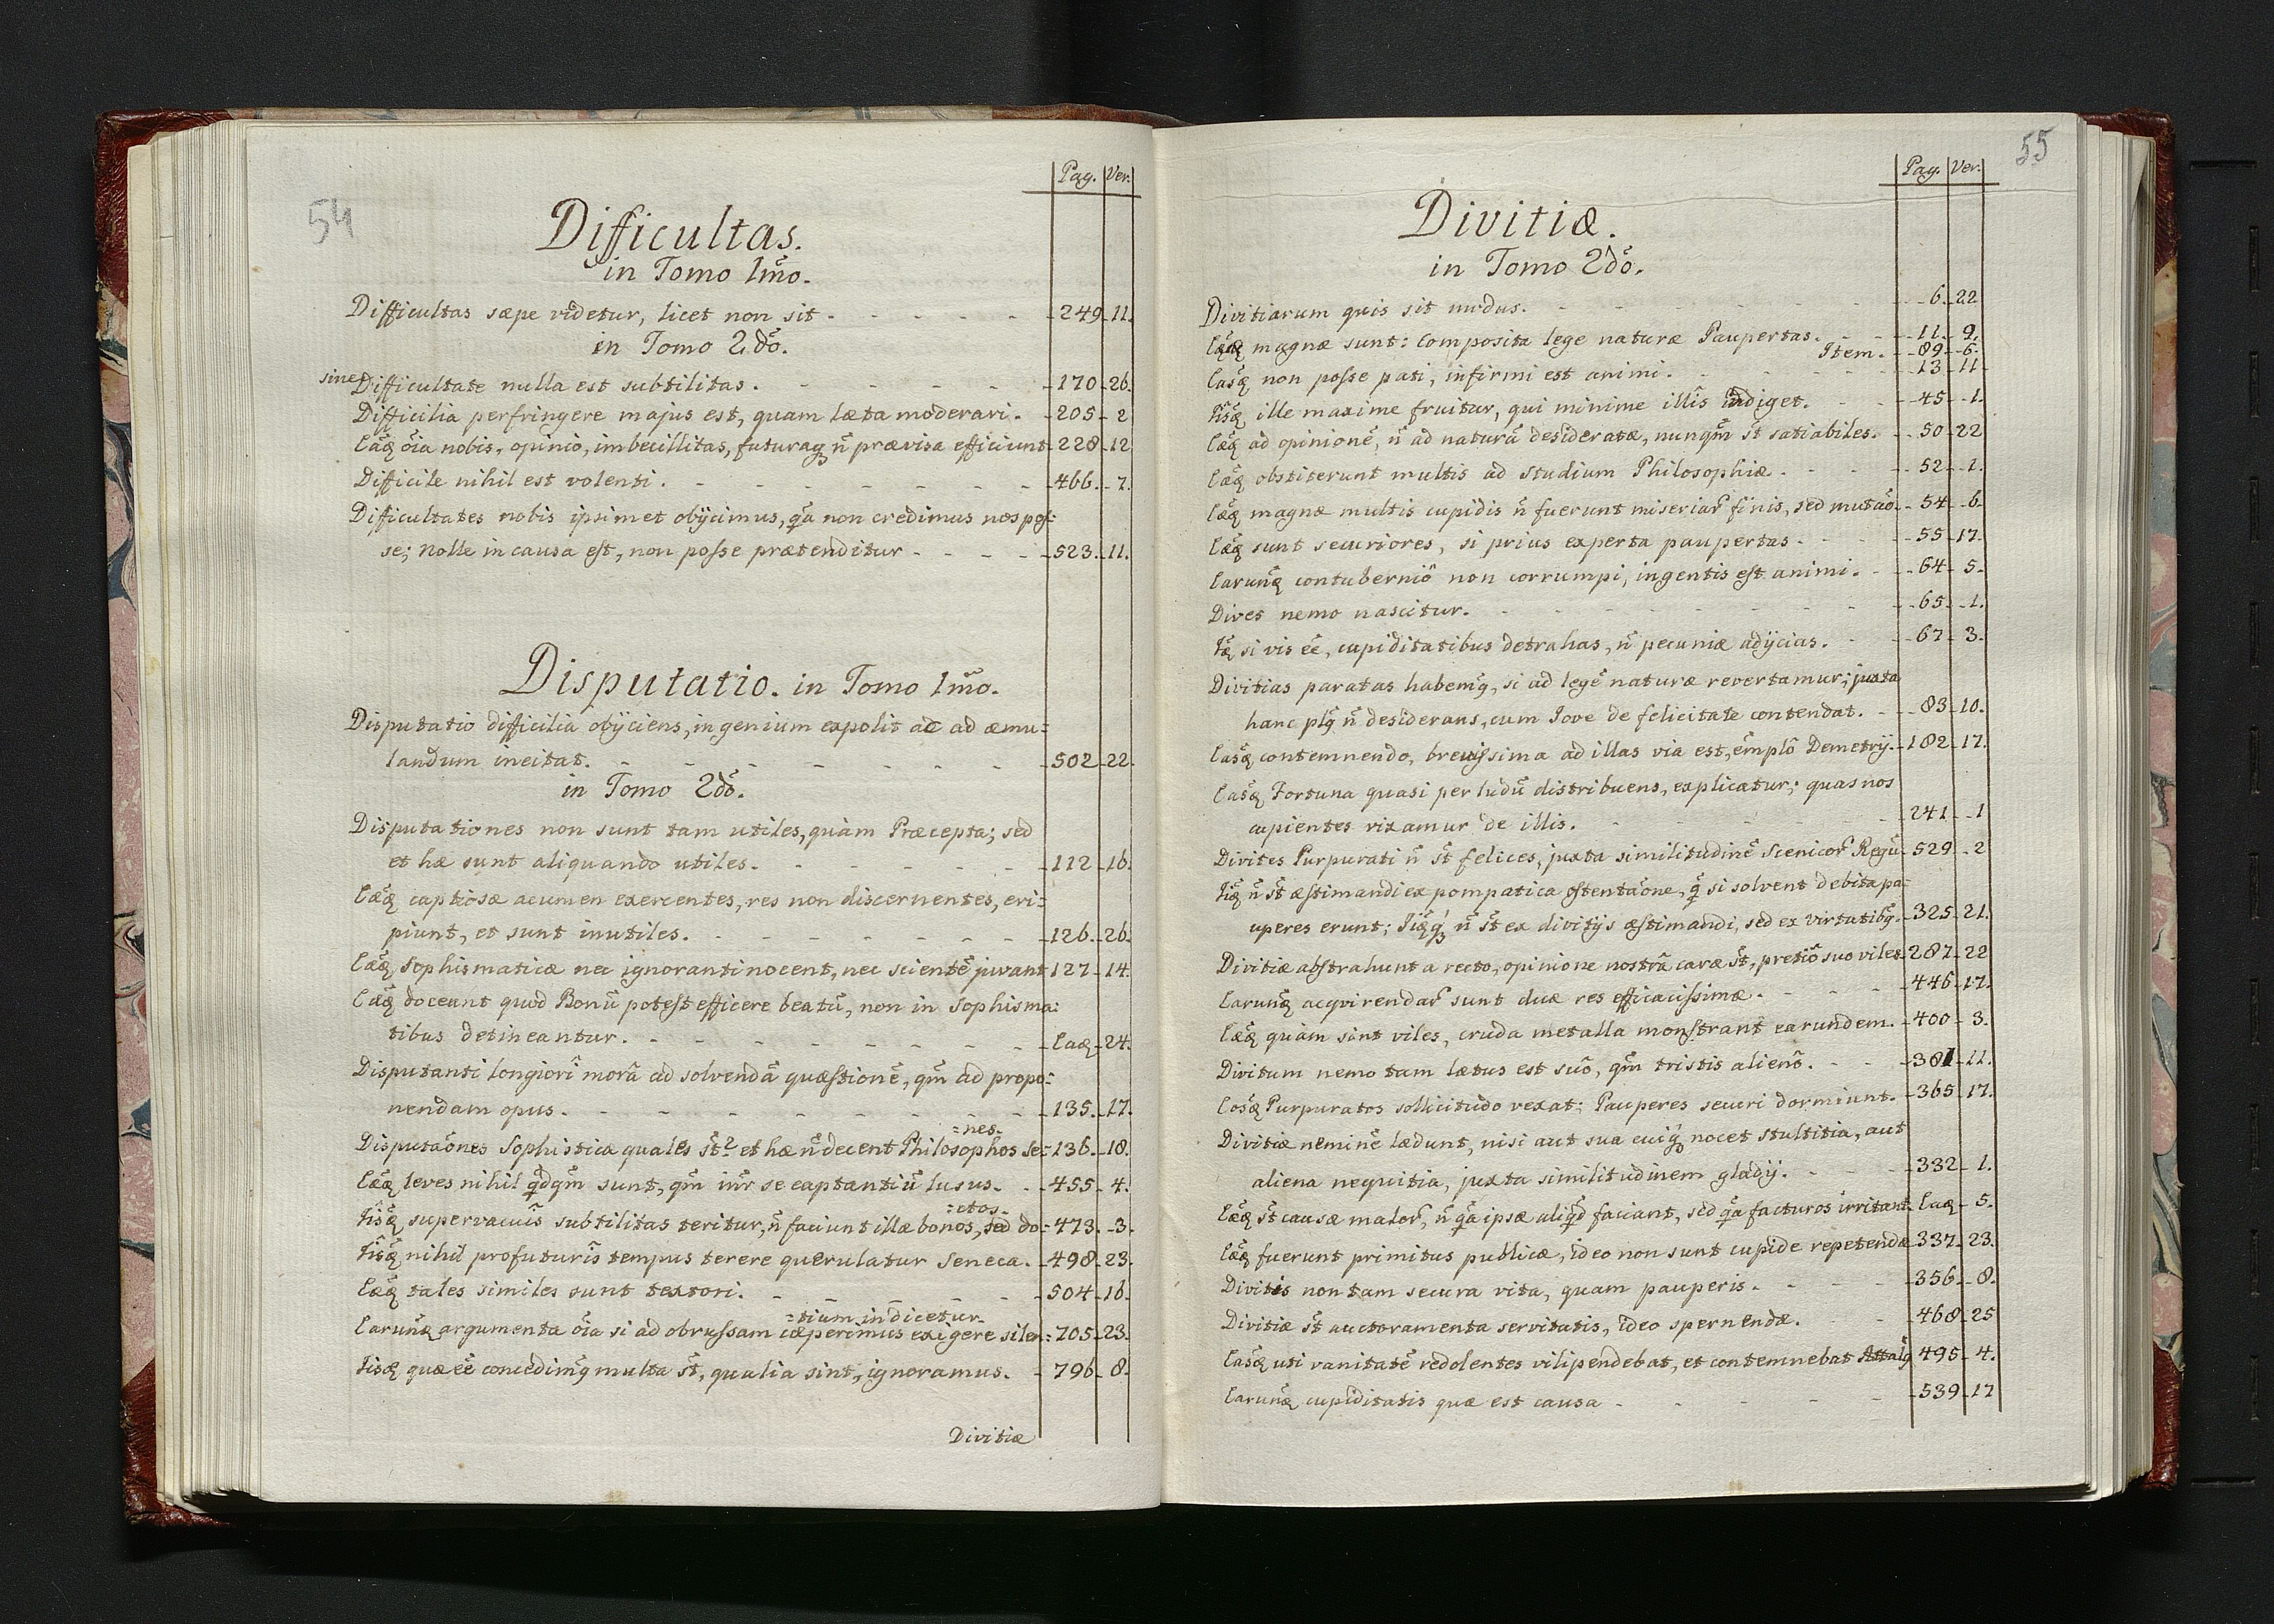 54
Pag. Ver.
Difficultas.
in Tomo 1mo.
Difficultas sæpe videtur, licet non sit - 249 11.
in Tomo 2do.
sine Difficultate nulla est subtilitas. - 170 26.
Difficilia perfringere majus est, quam læta moderari. - 205 - 2
Eāq̃ oia nobis, opinio, imbecillitas, futuraq̃ ñ prævisa efficiunt 228 12
Difficile nihil est volenti. - 466. - 7.
Difficultates nobis ipsimet obijcimus, qa non credimus nos pos:
se; Nolle in causa est, non posse prætenditur - 523. 11.
Disputatio. in Tomo 1mo.
Disputatio difficilia obijciens, ingenium expolit ac ad æmu:
landum incitat. - 502 22.
in Tomo 2do.
Disputationes non sunt tam utiles, quàm Præcepta; sed
et hæ sunt aliquando utiles. - 112 - 16.
Eæq̃ captiosæ acumen exercentes, res non discernentes, eri:
piunt, et sunt inutiles. - 126. 26.
Eæq̃ Sophismaticæ nec ignoranti nocent, nec scientē juvant 127 - 14.
Eæq̃ doceant quod Bonū potest efficere beatū, non in Sophisma:
tibus detineantur. - Eaq̃ 24.
Disputanti longiori mora ad solvendā quæstionē, qm̃ ad propo:
nendam opus. - 135. 17.
=nes.
Disputaōnes Sophisticæ quales st̃? et hæ ñ decent Philosophos Se: 136. 18.
Eæq̃ leves nihil qdqm̃ sunt, qm̃ inr̃ se captantiū lusus. - 455 - 4.
=ctos.
Iisq̃ supervacuis subtilitas teritur, ñ faciunt illæ bonos, sed do: 473. - 3.
Iisq̃ nihil profuturis tempus terere querulatur Seneca. - 498 - 23.
Eæq̃ tales similes sunt textori. - 504 - 16.
=tium indicetur.
Earunq̃ argumenta oia si ad obrussam cæperimus exigere silen: 705. 23.
Iisq̃ quæ eē concedimq multa st̃, qualia sint, ignoramus. - 796 - 8.
Divitiæ
55
Pag. Ver.
Divitiæ.
in Tomo 2do.
Divitiarum quis sit modus. - 6. 22
Eæq̃ magnæ sunt: composita lege naturæ Paupertas. - 11. - 9.
Item. - 89 - 6.
Easq̃ non posse pati, infirmi est animi. - 13 - 11
Iisq̃ ille maxime fruitur, qui minime illis indiget. - 45 - 1.
Eæq̃ ad opinionē, ñ ad naturā desideratæ, nunqm̃ st̃ satiabiles. - 50 - 22
Eæq̃ obstiterunt multis ad studium Philosophiæ. - 52 - 1.
Eæq̃ magnæ multis cupidis ñ fuerunt miseriar̃ finis, sed mutaō. - 54 - 6.
Eæq̃ sunt securiores, si prius experta paupertas. - 55 - 17.
Earunq̃ contuberniō non corrumpi, ingentis est animi. - 64 - 5.
Dives nemo nascitur. - 65 - 1.
Iq̃ si vis eē, cupiditatibus detrahas, ñ pecuniæ adijcias. - 67 - 3.
Divitias paratas habemq, si ad legē naturæ revertamur; juxta
hanc plq ñ desiderans, cum Jove de felicitate contendat. - 83 - 10.
Easq̃ contemnendo, brevissima ad illas via est, emplō Demetrij. - 182 - 17.
Easq̃ Fortuna quasi per ludū distribuens, explicatur; quas nos
capientes rixamur de illis. - 241 - 1
Divites Purpurati ñ st̃ felices, juxta similitudinē Scenicor̃ Regū 529 - 2
Iiq̃ ñ st̃ æstimandi ex pompatica ostentaōne, q̃ si solvent debita pa:
uperes erunt; Iiq̃q ñ st̃ ex divitijs æstimandi, sed ex virtutibq. 325 - 21.
Divitiæ abstrahunt a recto, opinione nostrā caræ st̃, pretiō suo viles 287 - 22
Earunq̃ acqvirendar̃ sunt duæ res efficacissimæ. - 446 - 17.
Eæq̃ quàm sint viles, cruda metalla monstrant earundem. - 400 - 3.
Divitum nemo tam lætus est suō, qm̃ tristis alienō. - 381 - 11.
Eosq̃ Purpuratos sollicitudo vexat: Pauperes securi dormiunt. - 365 - 17.
Divitiæ neminē lædunt, nisi aut sua cuiq nocet stultitia, aut
aliena nequitia, juxta similitudinem gladij. - 332 - 1.
Eæq̃ st̃ causæ malor̃, ñ qa ipsæ aliqd faciant, sed qa facturos irritant. Eaq̃ - 5.
Eæq̃ fuerunt primitus publicæ, ideo non sunt cupide repetendæ 337. 23.
Divitis non tam secura vita, quam pauperis. - 356 - 8.
Divitiæ st̃ auctoramenta servitutis, ideo spernendæ. - 468 - 25
Easq̃ uti vanitatē redolentes vilipendebat, et contemnebat Attalq 495 - 4.
Earunq̃ cupiditatis quæ est causa - 539 - 17